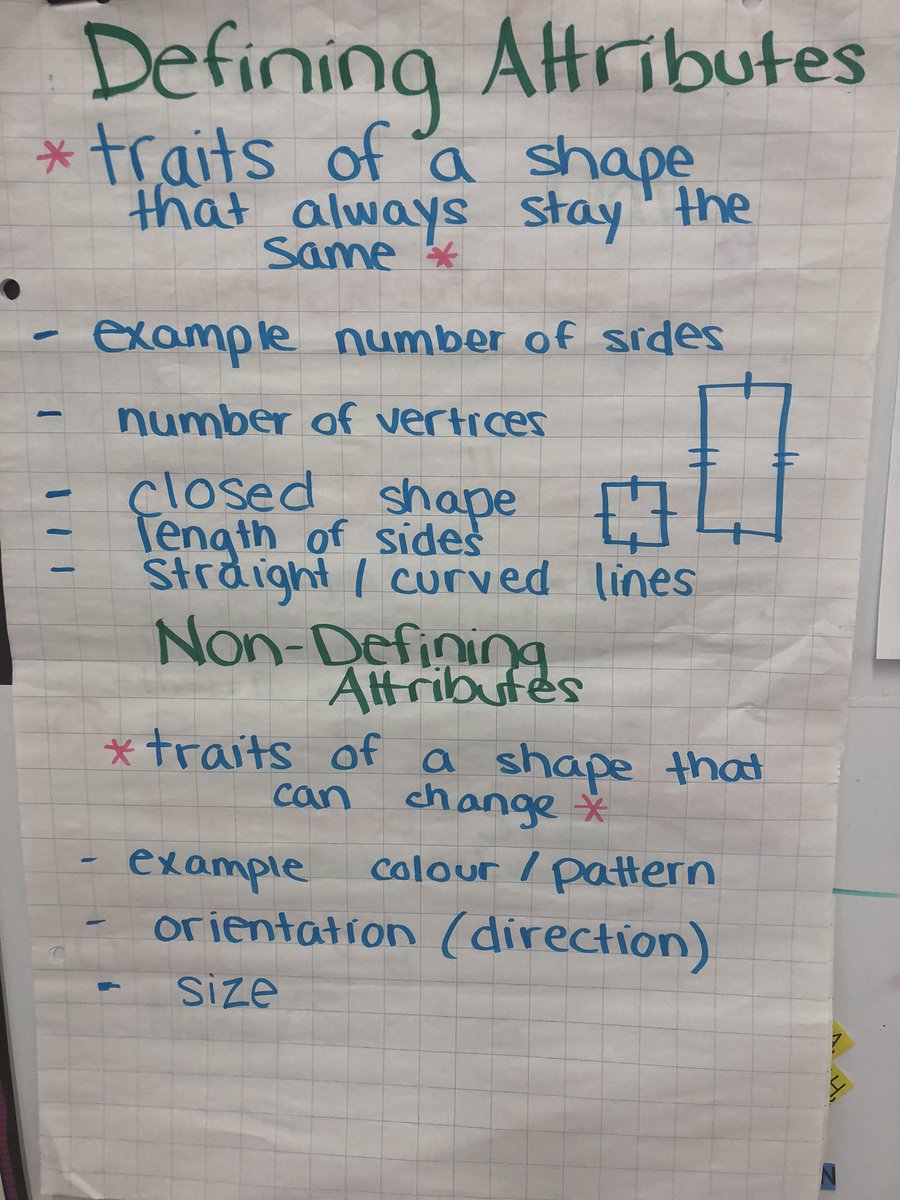 Defining Attributes
* traits of a shape
that always stay the
same *
- example number of sides
- number of vertices
- closed shape
- length of sides
- straight / curved lines
Non-Defining
Attributes
* traits of a shape that
can change *
- example colour / pattern
- orientation (direction)
- size
A
H
N